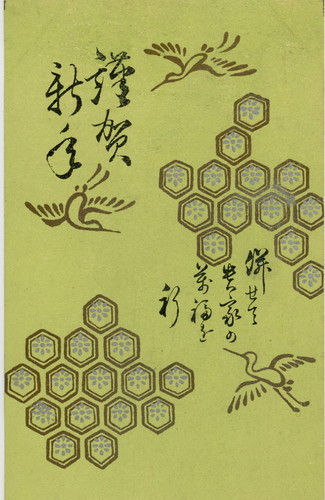 謹賀
新年
併せて
貴家の
萬福を
祈